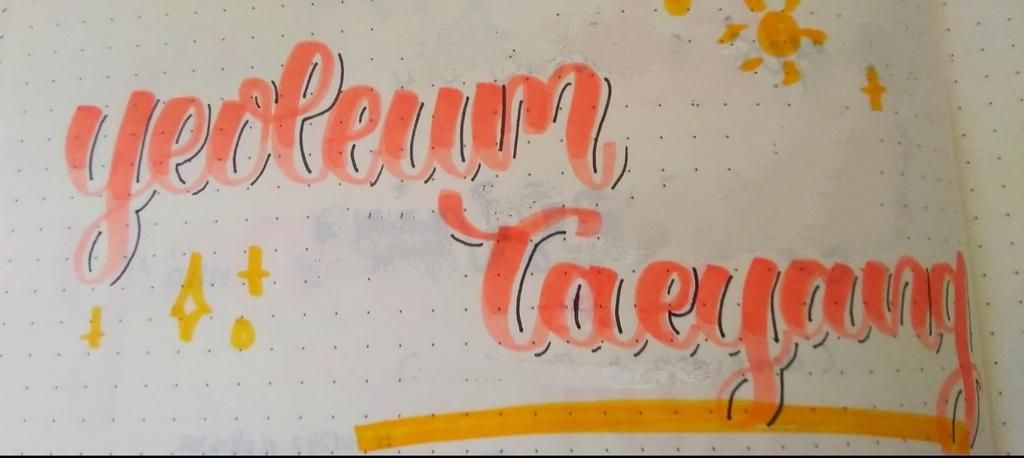 yeoleum
Taeyang